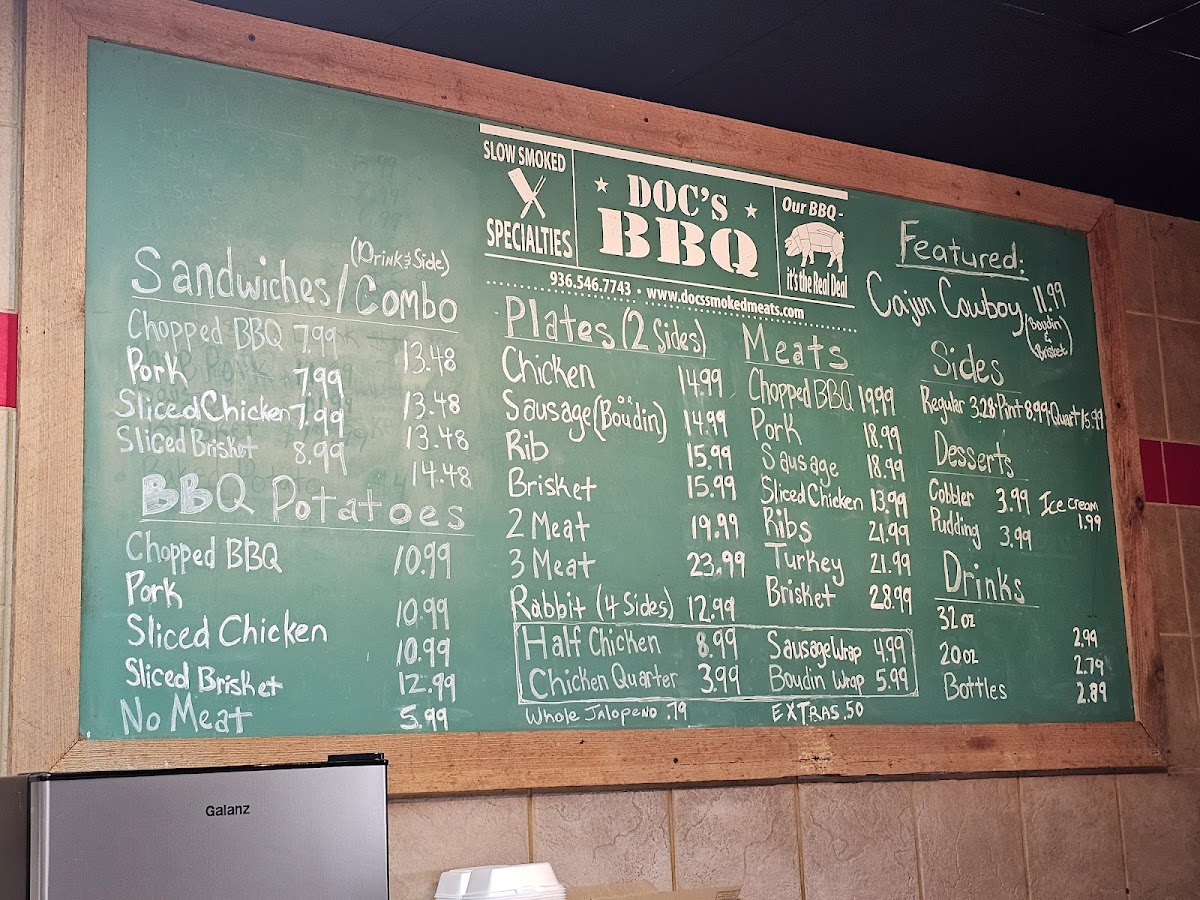 SLOW SMOKED
SPECIALTIES
DOC'S
BBQ
Our BBQ -
it's the Real Deal
936.546.7743 • www.docssmokedmeats.com
Sandwiches/Combo
(Drink & Side)
Chopped BBQ 7.99 13.48
Pork 7.99 13.48
Sliced Chicken 7.99 13.48
Sliced Brisket 8.99 14.48
BBQ Potatoes
Chopped BBQ 10.99
Pork 10.99
Sliced Chicken 10.99
Sliced Brisket 12.99
No Meat 5.99
Plates (2 Sides)
Chicken 14.99
Sausage (Boudin) 14.99
Rib 15.99
Brisket 15.99
2 Meat 19.99
3 Meat 23.99
Rabbit (4 Sides) 12.99
Half Chicken 8.99
Chicken Quarter 3.99
Whole Jalopeno .79
Meats
Chopped BBQ 19.99
Pork 18.99
Sausage 18.99
Sliced Chicken 13.99
Ribs 21.99
Turkey 21.99
Brisket 28.99
Sausage Wrap 4.99
Boudin Wrap 5.99
EXTRAS .50
Featured:
Cajun Cowboy 11.99
(Boudin
&
Brisket)
Sides
Regular 3.28 Pint 8.99 Quart 15.99
Desserts
Cobbler 3.99 Ice cream
Pudding 3.99 1.99
Drinks
32 oz 2.99
20 oz 2.79
Bottles 2.89
Galanz